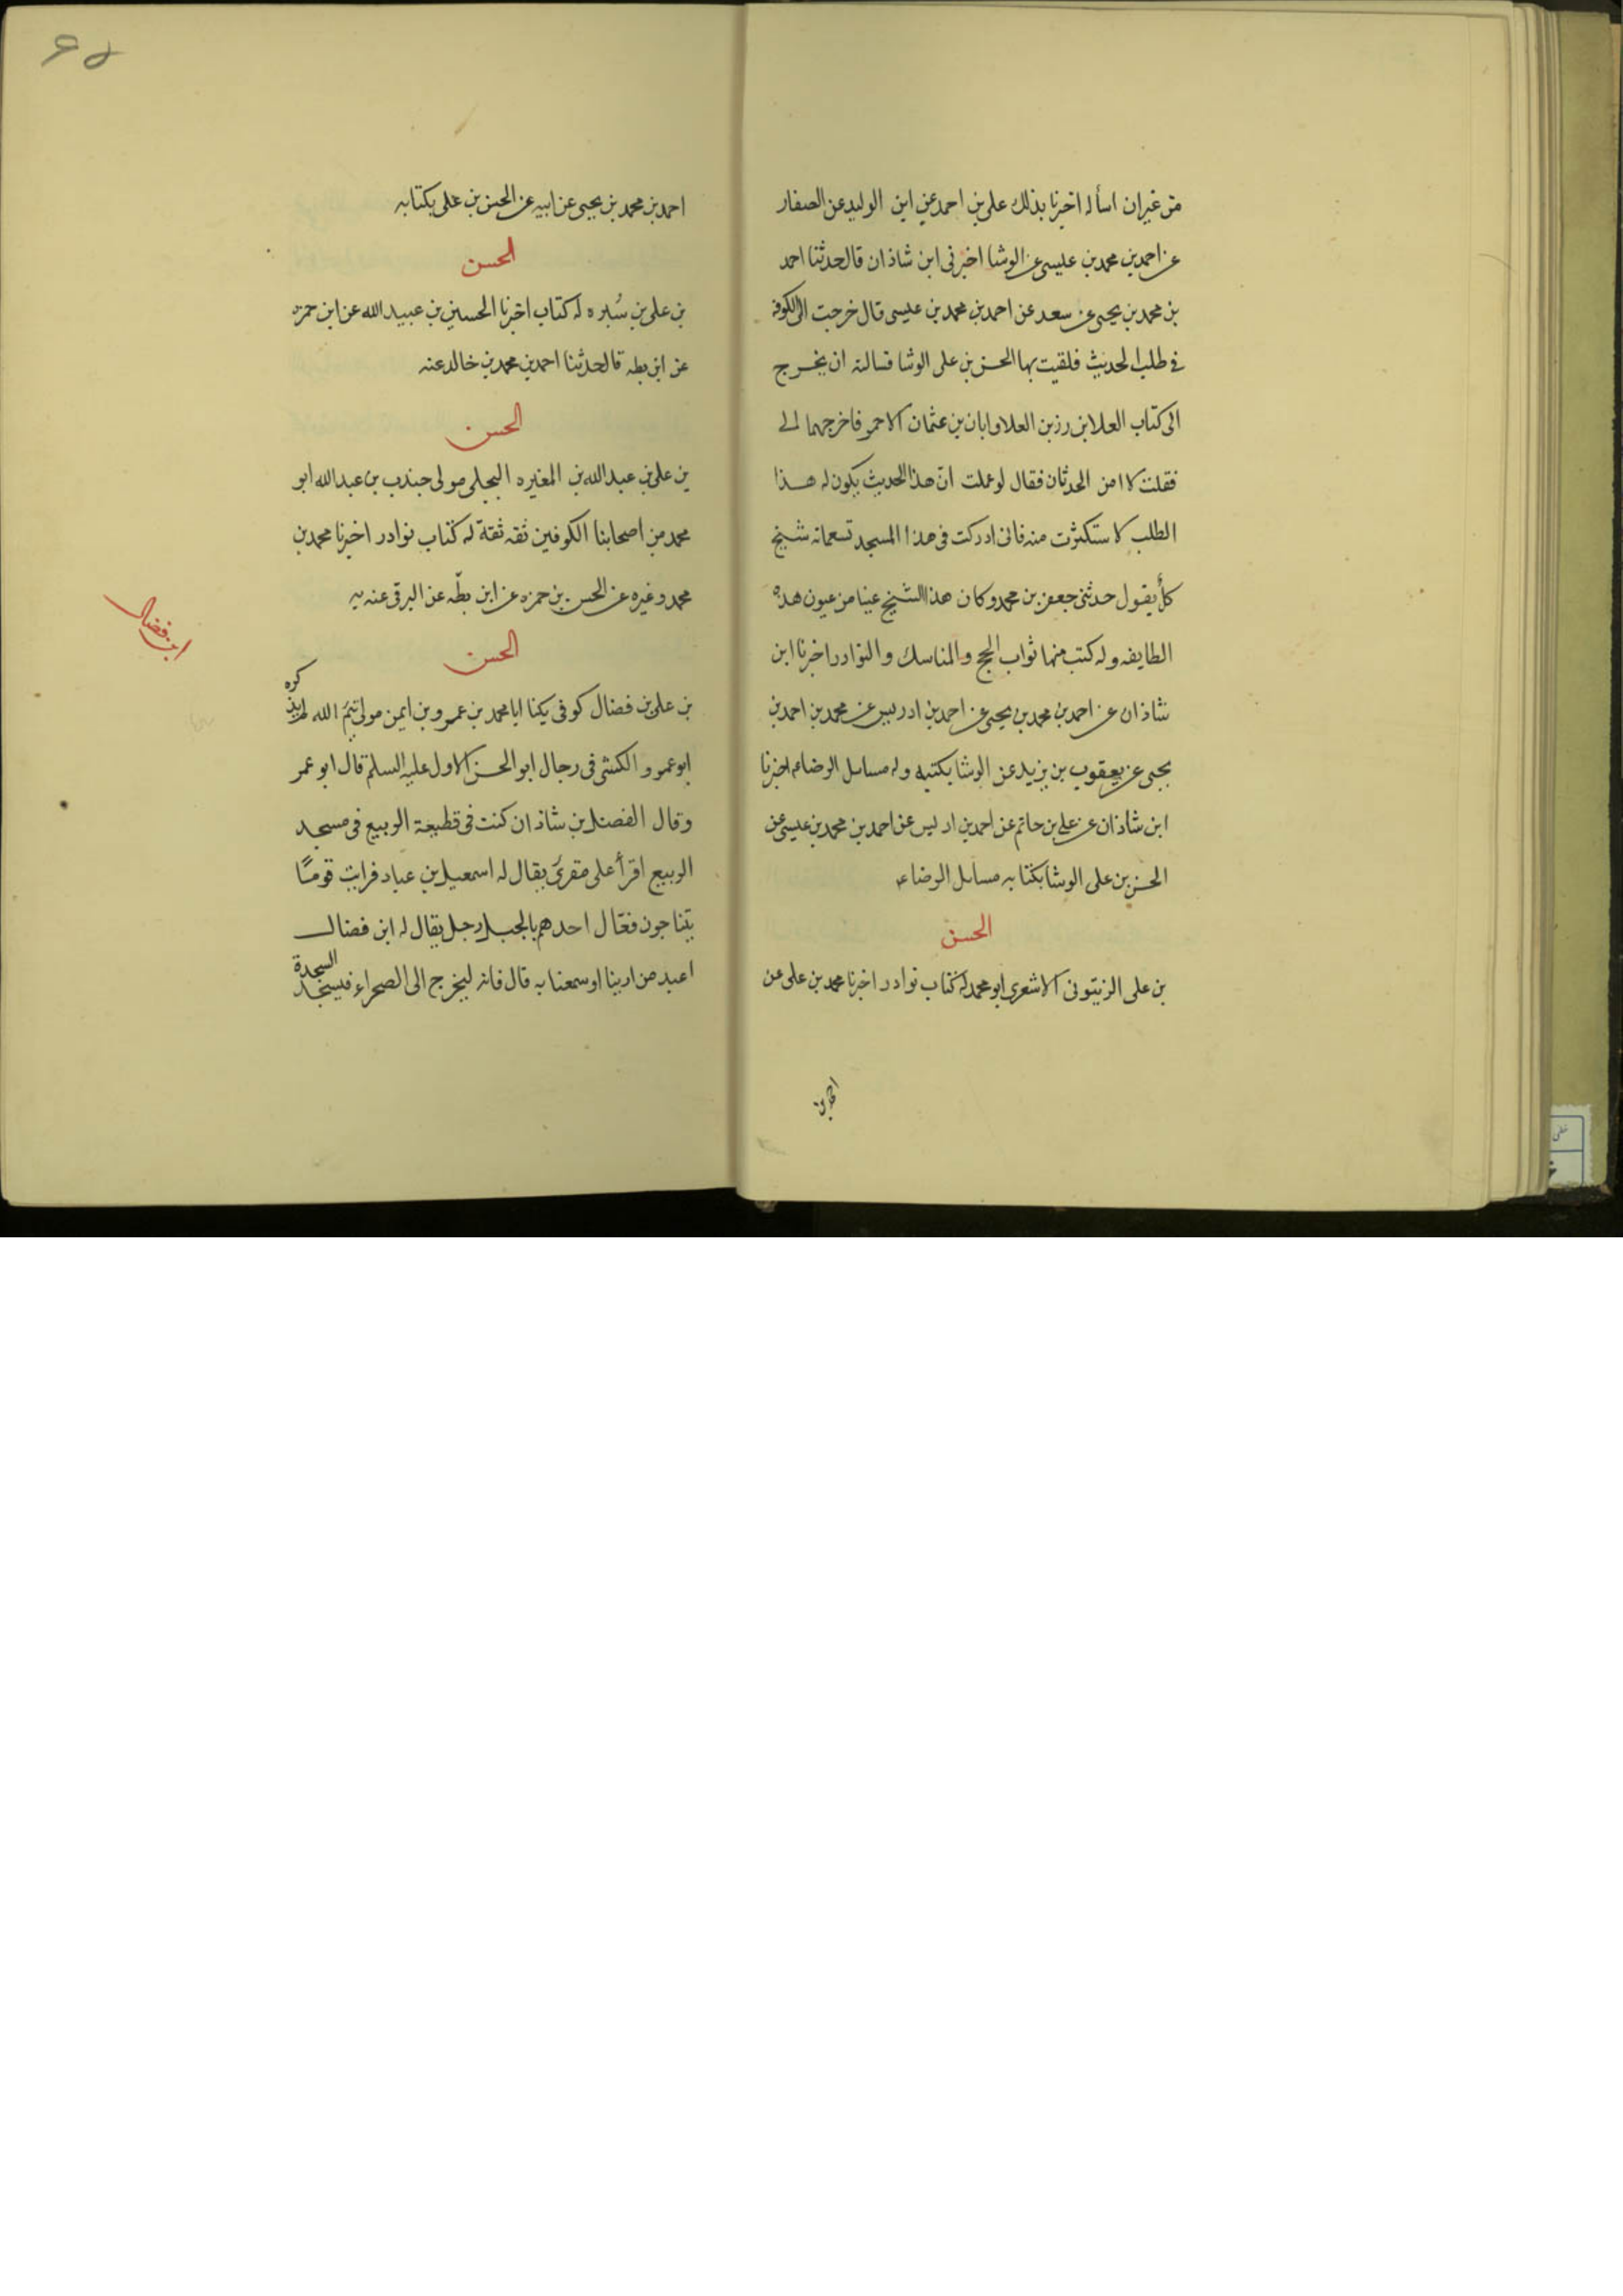 من غيران اسأله اخبرنا بذلك على بن احمد عن ابن الوليد عن الصفار
عن احمد بن محمد بن عيسى عن الوشا اخبرنى ابن شاذان قال حدثنا احمد
بن محمد بن يحيى عن سعد عن احمد بن محمد بن عيسى قال خرجت الى الكوفه
فى طلب الحديث فلقيت بها الحسن بن على الوشا فسالته ان يخرج
الى كتاب العلا بن رزين العلا وابان بن عثمان الاحمر فاخرجهما لى
فقلت لا امن الحدثان فقال لو علمت انّ هذا الحديث يكون له هذا
الطلب لاستكثرت منه فانى ادركت فى هذا المسجد تسعمائه شيخ
كلّ يقول حدثنى جعفر بن محمد وكان هذا الشيخ عينا من عيون هذه
الطايفه وله كتب منها ثواب الحج والمناسك والنوادر اخبرنا ابن
شاذان عن احمد بن محمد بن يحيى عن احمد بن ادريس عن محمد بن احمد بن
يحيى عن يعقوب بن يزيد عن الوشا بكتبه وله مسايل الرضاء اخبرنا
ابن شاذان عن على بن حاتم عن احمد بن ادليس عن احمد بن محمد بن عيسى عن
الحسن بن على الوشا بكتابه مسايل الرضاء
الحسن
بن على الزيتونى الاشعرى ابو محمد له كتاب نوادر اخبرنا محمد بن على عن
احمد بن
احمد بن محمد بن يحيى عن ابيه عن الحسن بن على بكتابه
الحسن
بن على بن سُبره له كتاب اخبرنا الحسين بن عبيد الله عن ابن حمزه
عن ابن بطه قال حدثنا احمد بن محمد بن خالد عنه
الحسن
بن على بن عبد الله بن المغيره البجلى مولى جندب بن عبد الله ابو
محمد من اصحابنا الكوفين ثقه ثقة له كتاب نوادر اخبرنا محمد بن
محمد وغيره عن الحسن بن حمزه عن ابن بطّه عن البرقى عنه به
الحسن
ابن فضال
بن على بن فضال كوفى يكنا ابا محمد بن عمرو بن ايمن مولى تيم الله لم يذكره
ابو عمرو الكشى فى رجال ابو الحسن الاول عليه السلم قال ابو عمر
وقال الفضل بن شاذان كنت فى قطيعة الربيع فى مسجد
الربيع اقرأ على مقرئ يقال له اسمعيل بن عباد فرايت قومًا
يتناجون فقال احدهم بالجبل رجل يقال له ابن فضال
اعبد من اريناا وسمعنا به قال فانه ليخرج الى الصحراء فيسجد السجدة